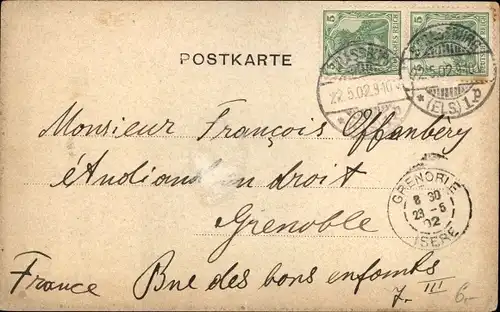 5
5
DEUTSCHES REICH
POSTKARTE
STRASSBURG
22.5.02.9-10
* (ELS) 1.
Monsieur François Offenbéry
étudiand en droit
Grenoble
GRENOBLE
8 30
23 - 5
02
ISERE
France Bne des bons enfants
7. III 6.-